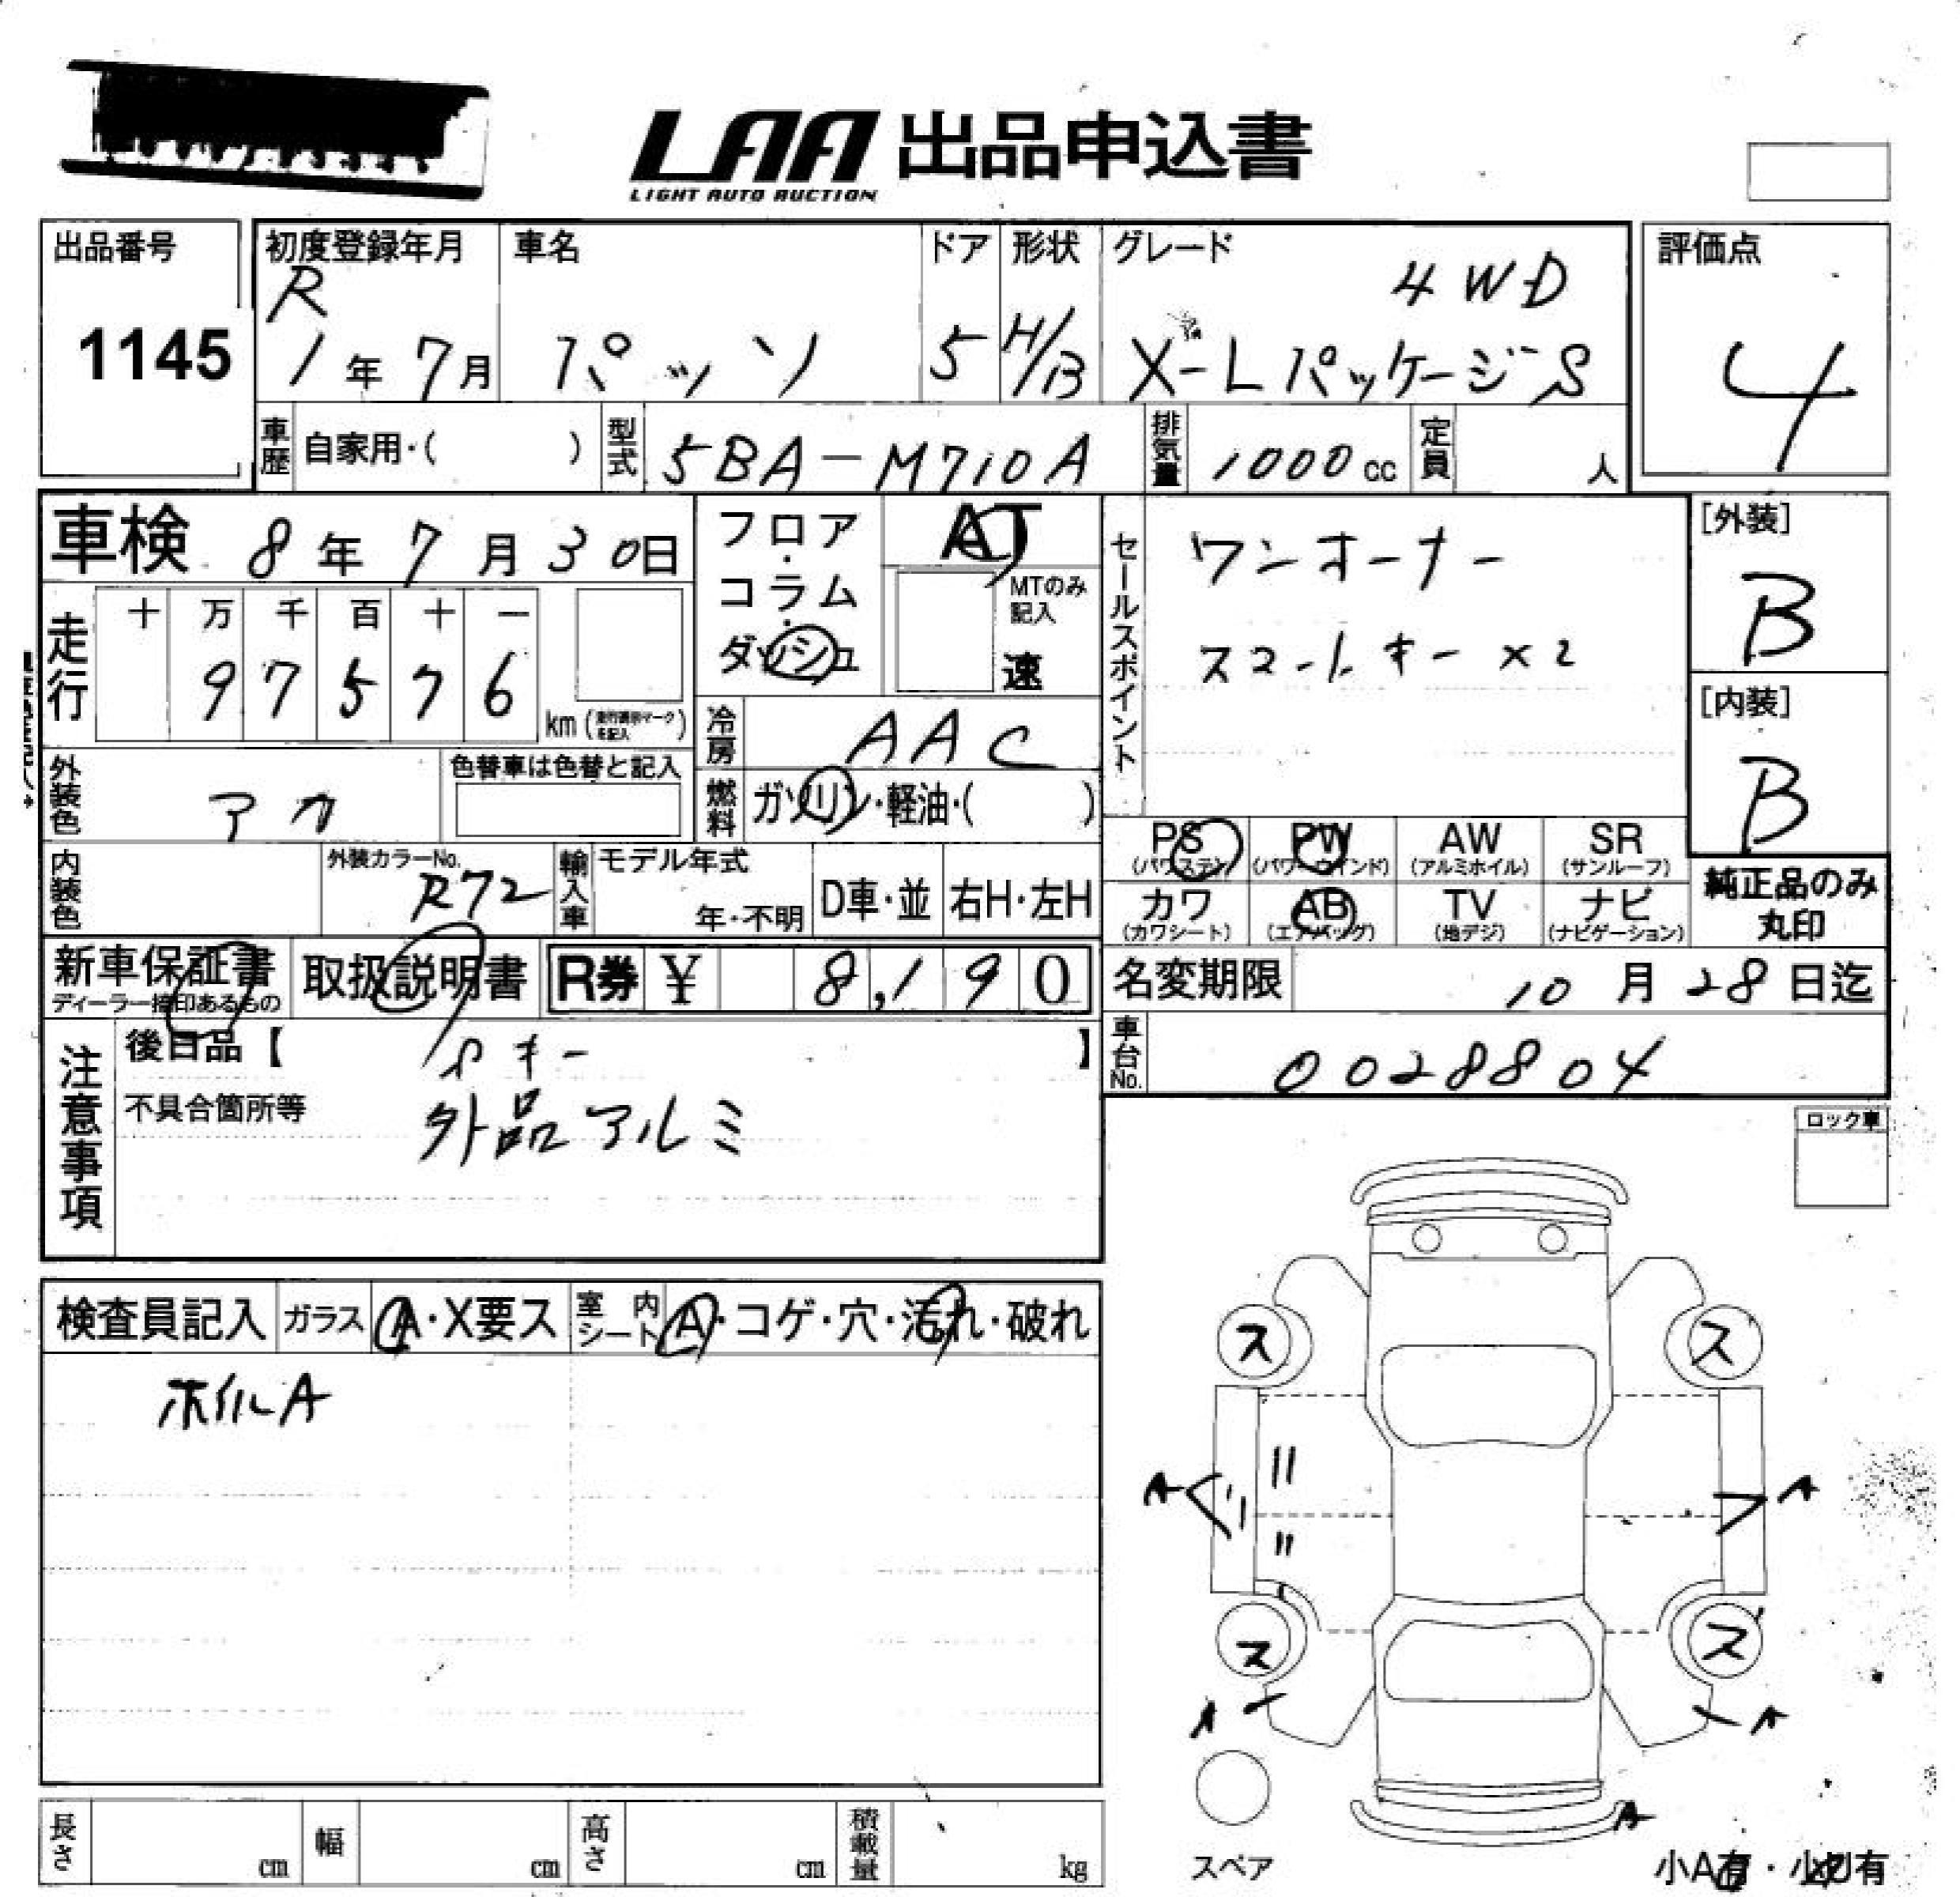 LAA 出品申込書
LIGHT AUTO AUCTION
出品番号
1145
初度登録年月
R
1年7月
車名
パッソ
ドア
5
形状
H/B
グレード
4WD
X-LパッケージS
評価点
4
車歴 自家用・( )
型式 5BA-M710A
排気量 1000cc
定員 人
車検 8年7月30日
フロア・コラム・ダッシュ
AT
MTのみ記入
速
走行
十万千百十一
97576
km(走行表示マークを記入)
冷房 AAC
外装色 アカ
色替車は色替と記入
燃料 ガソリン・軽油・( )
内装色
外装カラーNo.
R72
輸入車
モデル年式
年・不明
D車・並
右H・左H
セールスポイント
ワンオーナー
スマートキー×2
[外装]
B
[内装]
B
PS (パワステ)
PW (パワーウインド)
AW (アルミホイル)
SR (サンルーフ)
カワ (カワシート)
AB (エアバッグ)
TV (地デジ)
ナビ (ナビゲーション)
純正品のみ
丸印
新車保証書
ディーラー捺印あるもの
取扱説明書
R券 ¥ 8,190
名変期限 10月28日迄
車台No. 0028804
注意事項
後日品【 キー 】
不具合箇所等
外品アルミ
ロック車
検査員記入
ガラス A・X要ス
室内シート A・コゲ・穴・汚れ・破れ
ホイルA
ス ス
A A
ス ス
A A
A
スペア
小A有・小U有
長さ cm
幅 cm
高さ cm
積載量 kg